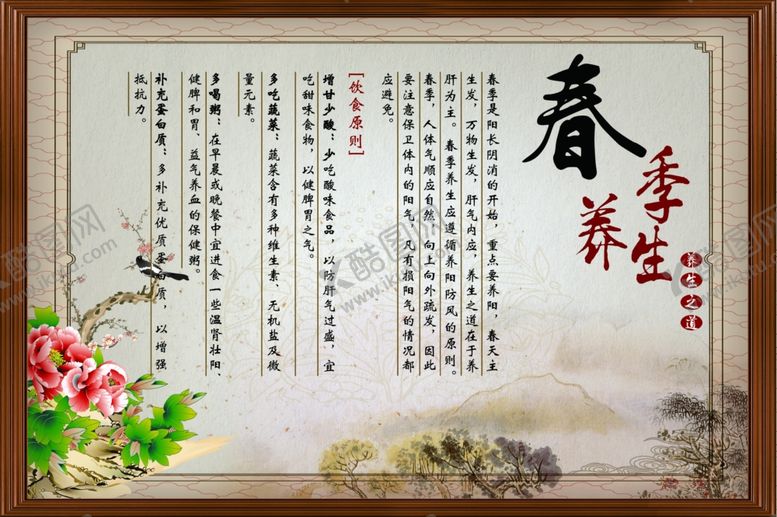 春季养生
养生之道
春季是阳长阴消的开始，重点要养阳，春天主
生发，万物生发，肝气内应，养生之道在于养
肝为主。春季养生应遵循养阳防风的原则。
春季，人体气顺应自然，向上向外疏发，因此
要注意保卫体内的阳气，凡有损阳气的情况都
应避免。
[饮食原则]
增甘少酸：少吃酸味食品，以防肝气过盛，宜
吃甜味食物，以健脾胃之气。
多吃蔬菜：蔬菜含有多种维生素、无机盐及微
量元素。
多喝粥：在早晨或晚餐中宜进食一些温肾壮阳、
健脾和胃、益气养血的保健粥。
补充蛋白质：多补充优质蛋白质，以增强
抵抗力。